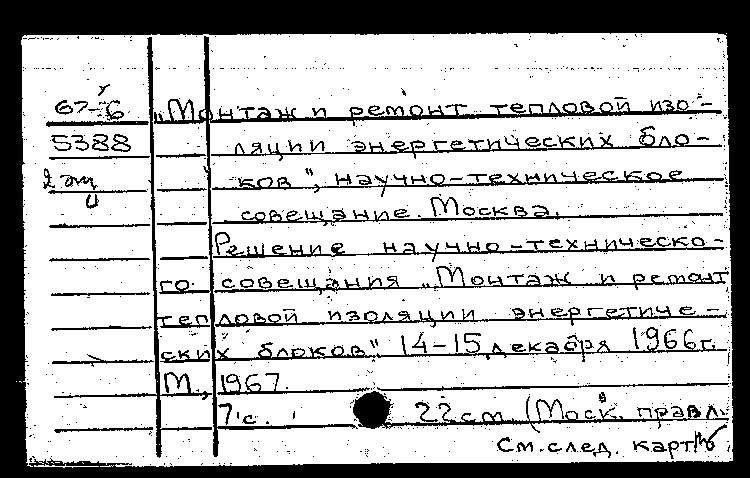 67-6 „Монтаж и ремонт тепловой изо-
5388 ляции энергетических бло-
2 эц ков", научно-техническое
совещание. Москва.
Решение научно-техническо-
го совещания „Монтаж и ремонт
тепловой изоляции энергетиче-
ских блоков". 14-15 декабря 1966г.
М., 1967.
7 с. 22см. (Моск. правл.
См. след. карт